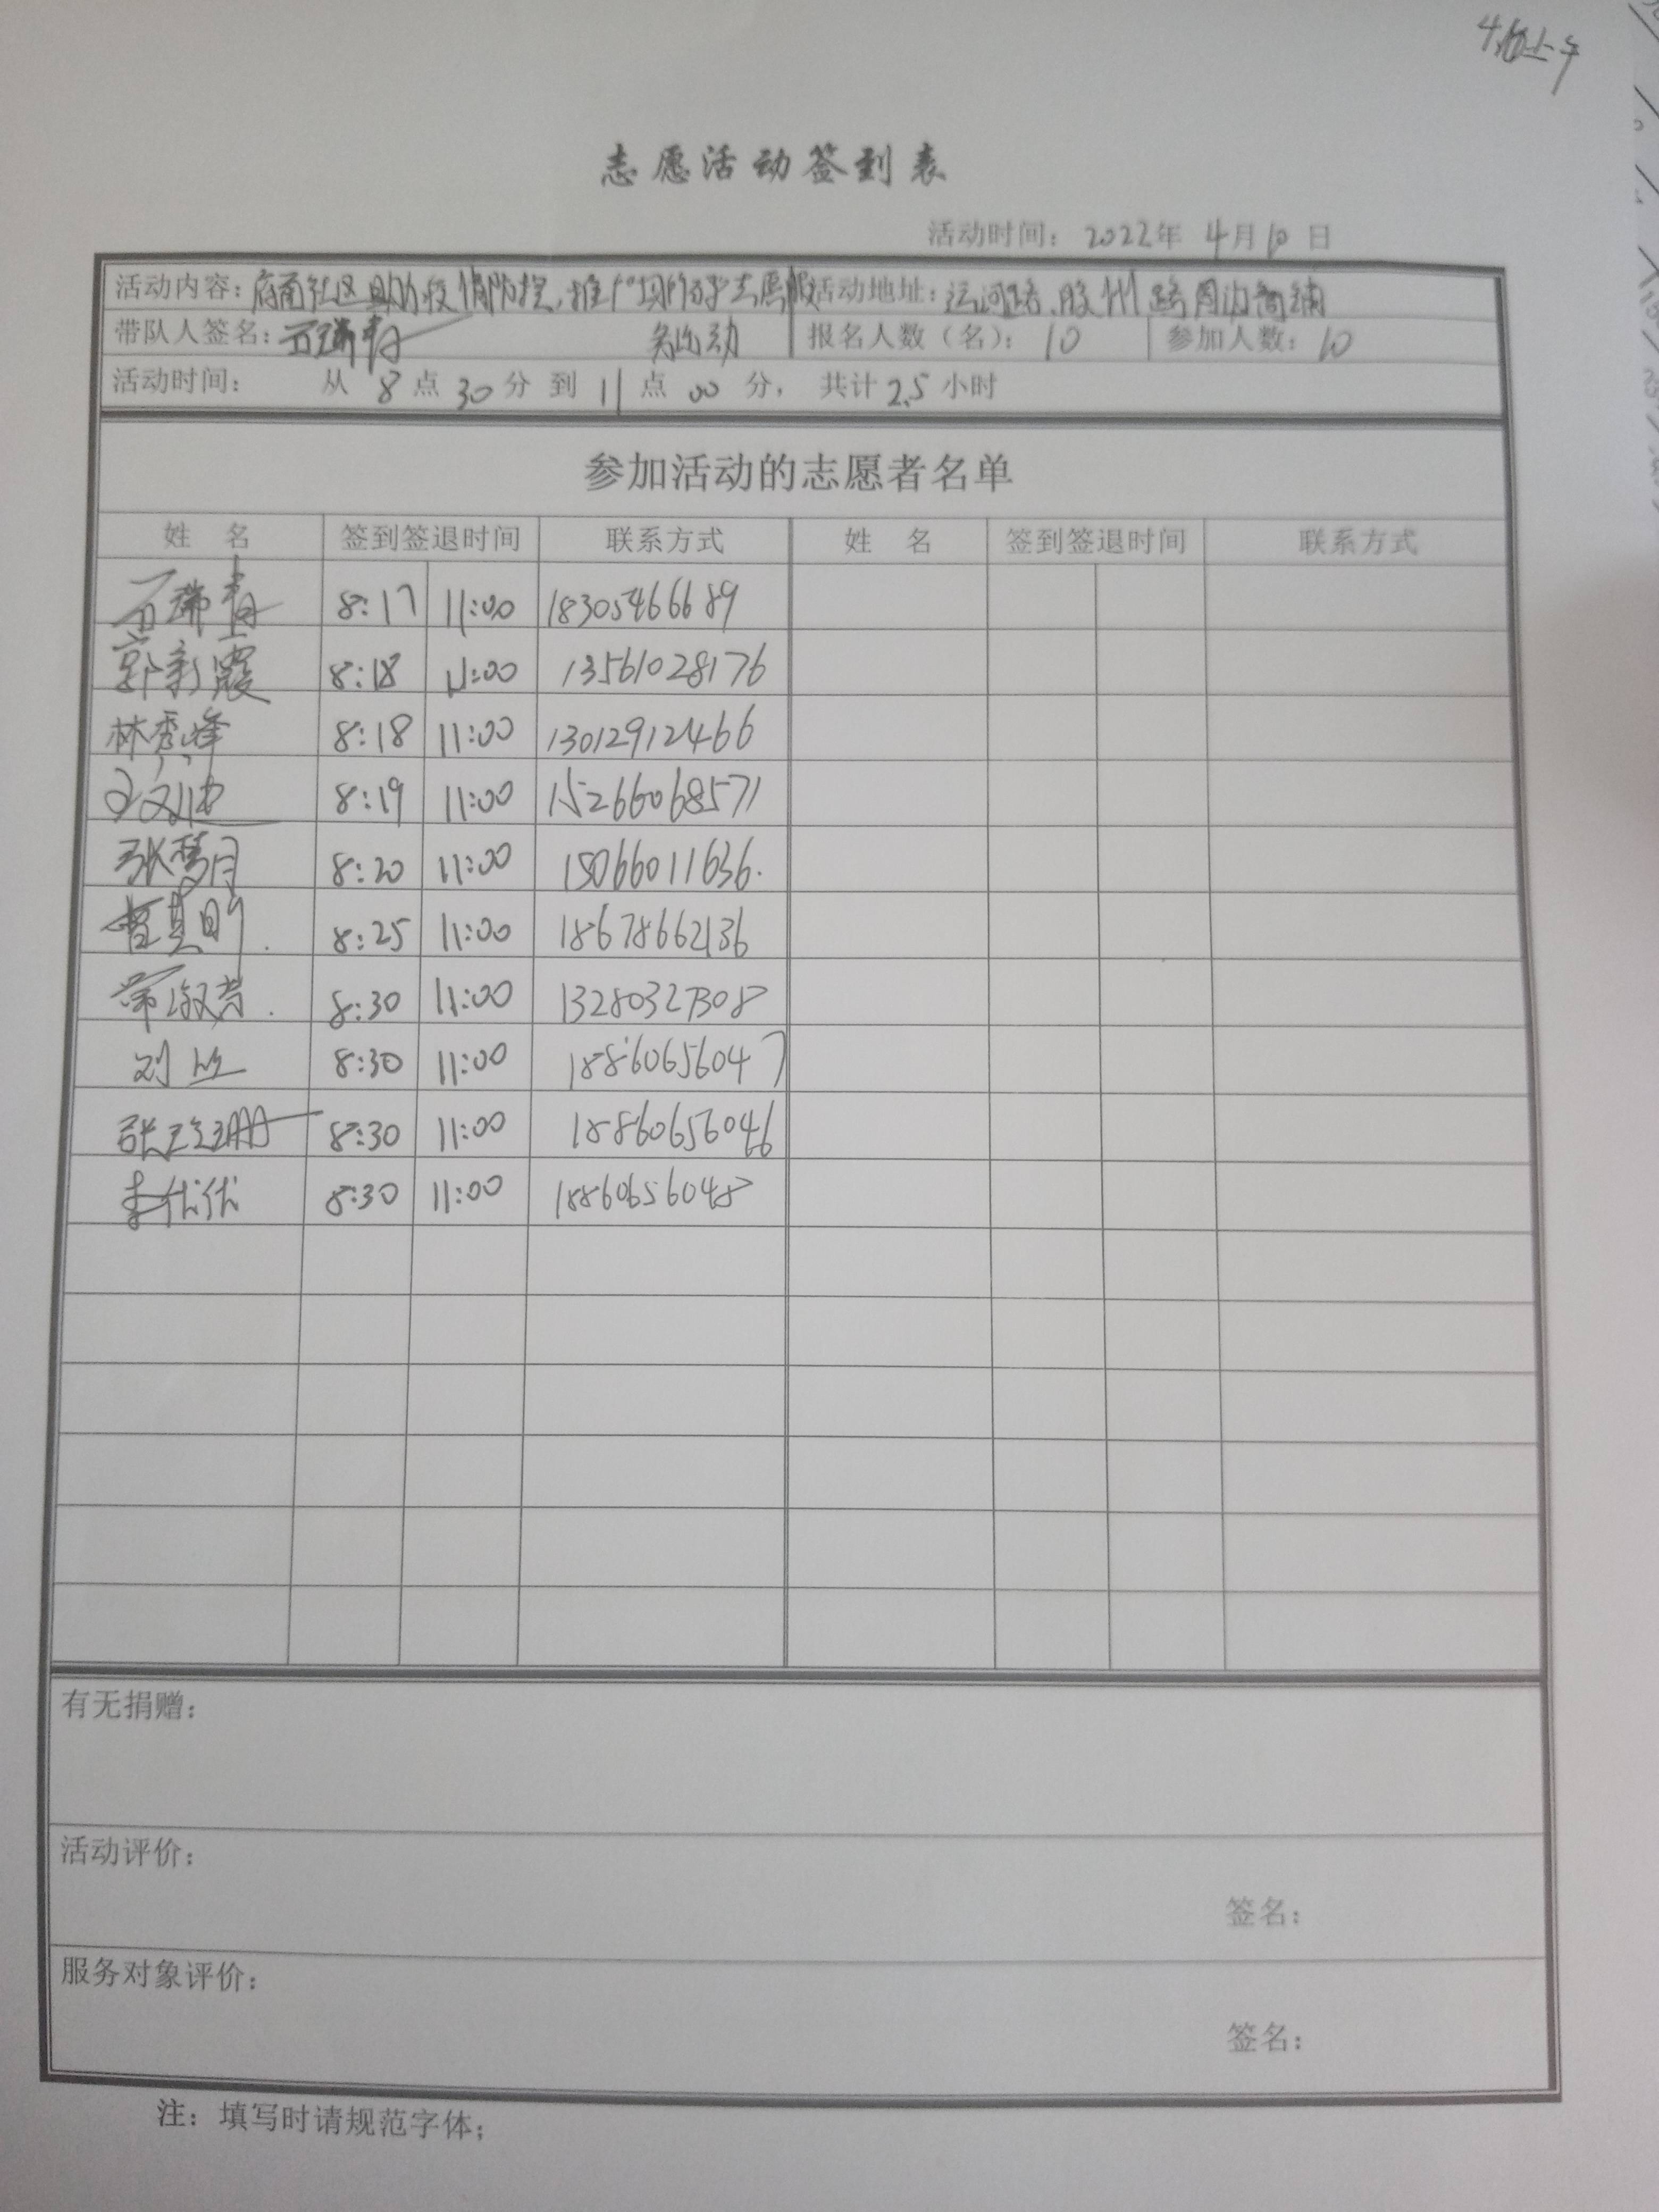 4.10上午
志愿活动签到表
活动时间：2022年 4月10日
活动内容：府南社区 助力疫情防控，推广"场所码"志愿服 活动地址：运河路、胶州路周边商铺
带队人签名： 务活动 报名人数（名）：10 参加人数：10
活动时间： 从 8 点 30 分 到 11 点 00 分， 共计 2.5 小时
参加活动的志愿者名单
姓 名 签到签退时间 联系方式 姓 名 签到签退时间 联系方式
8:17 11:00 18305466689
郭新霞 8:18 11:00 13561028176
林秀峰 8:18 11:00 13012912466
8:19 11:00 15266068571
张梦月 8:20 11:00 15066011636.
8:25 11:00 18678662136
8:30 11:00 13280327308
刘 8:30 11:00 18860656047
张 8:30 11:00 18860656046
李优优 8:30 11:00 18860656048
有无捐赠：
活动评价：
签名：
服务对象评价：
签名：
注：填写时请规范字体；